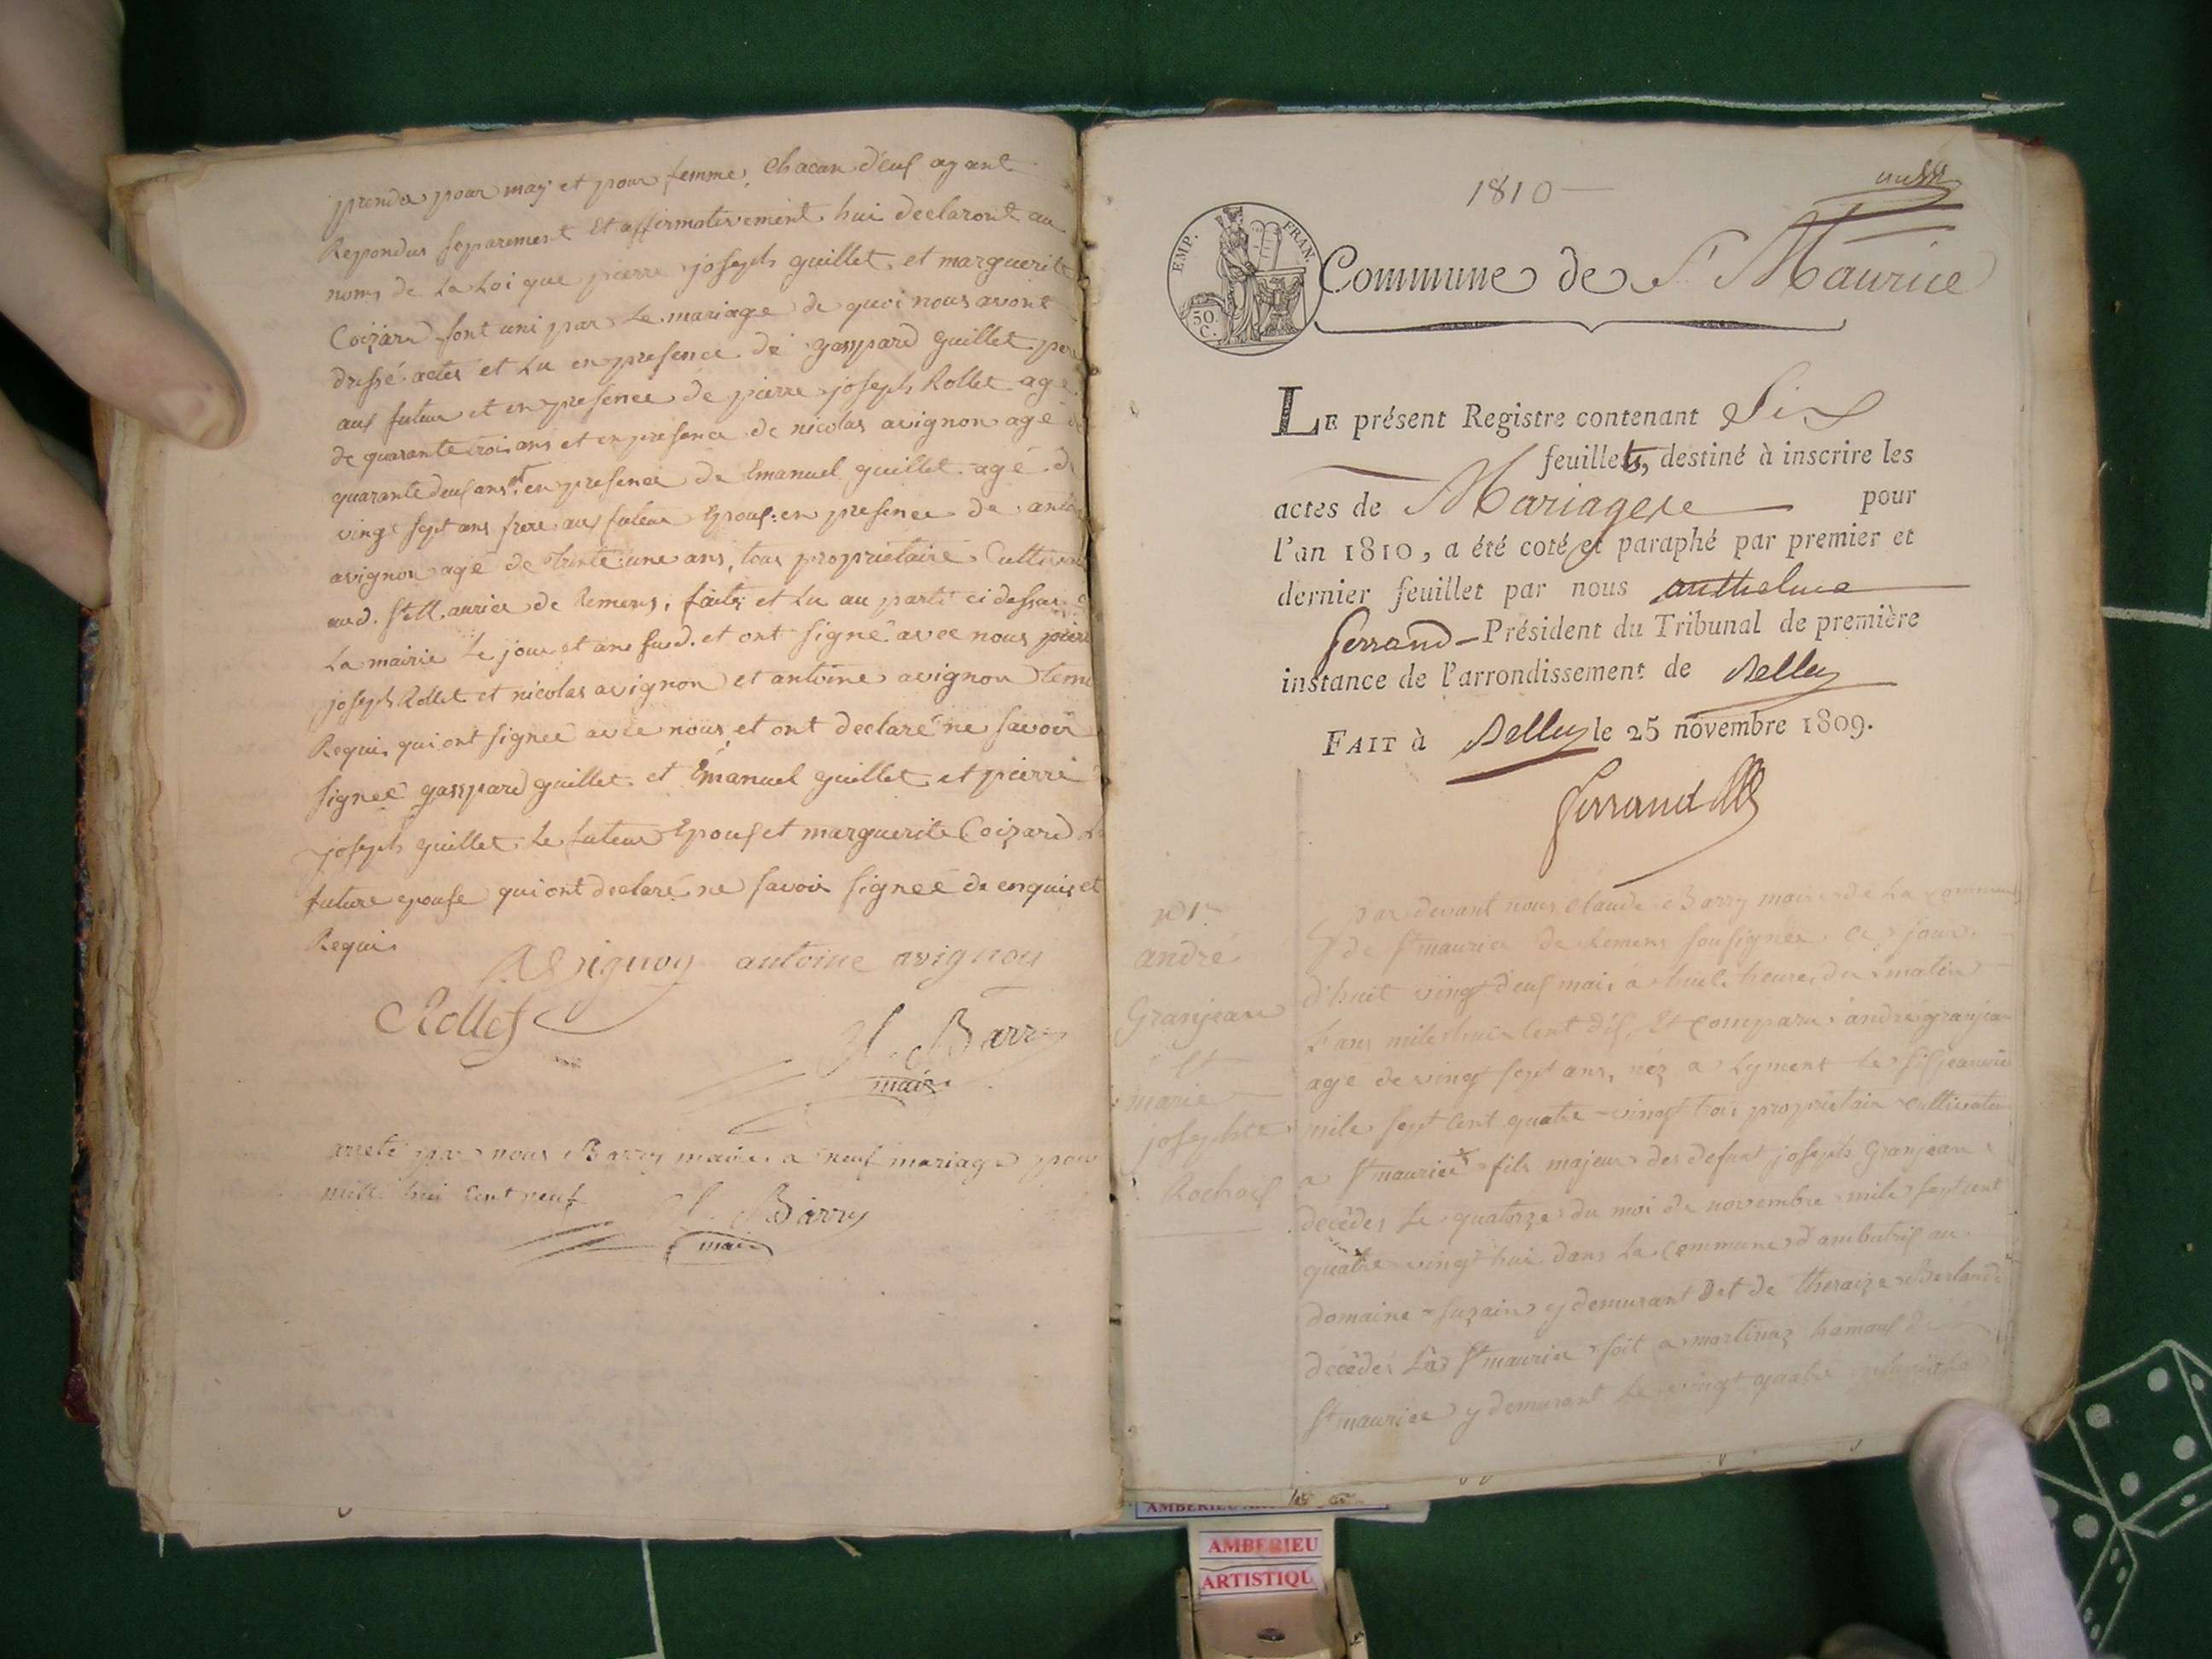 prendre pour mary et pour femme, chacun d'eux ayant
Repondus separement Et affirmativement hui declaront au
noms de La Loi que pierre joseph guillet et marguerite
Coizard sont uni par Le mariage de quoi nous avont
dressé actes et Lu en presence de gasspard guillet pere
aux futeur et en presence de pierre joseph Rollet age
de quarante trois ans et en presence de nicolas avignon agé de
quarante deux ans et en presence de Emanuel guillet agé de
vingt sept ans frere aux futeur Epoux en presence de
avignon agé de trente une ans, tous proprietaire
aud. St Maurice de Remens, faits et Lu au parti ci dessus
La mairie Le jour et ans susd. et ont signé avec nous pierre
joseph Rollet et nicolas avignon et antoine avignon
Requi, qui ont signeé avec nous, et ont declaré ne savoir
signeé gasspard guillet et Emanuel guillet et pierre
joseph guillet Le futeur Epoux et marguerite Coizard
future epouse qui ont declaré ne savoir signeé de enquis et
Requi
Avignon antoine avignon
Rollet
Cl. Barry
maire
arreté par nous Barry maire a neuf mariage pour
mille hui cent neuf
Cl. Barry
maire
1810
EMP. FRAN.
50. C.
Commune de St Maurice
LE présent Registre contenant Six
feuillets, destiné à inscrire les
actes de Mariages pour
l'an 1810, a été coté et paraphé par premier et
dernier feuillet par nous anthelme
ferrand Président du Tribunal de première
instance de l'arrondissement de Belley
FAIT à Belley le 25 novembre 1809.
ferrand
n° 1er
andré
Granjean
Et
marie
josephte
Rochaix
par devant nous claude Barry maire de La commune
de St maurice de Remens sousignée ce jour
d'huit vingt deux mai à huit heure du matin
L'ans mile huit cent dix, Et comparu andré granjean
agé de vingt sept ans, néz a Lyment Le six janvier
mile sept cent quatre vingt trois proprietair cultivateur
a St maurice fils majeur des defunt joseph Granjean
decédes Le quatorze du moi de novembre mile sept cent
quatre vingt hui dans La commune d'ambutrix au
domaine suzain y demurant et de theraize Berland
décédes La St maurice soit a martinaz hamaux de
St maurice y demurant Le vingt quatre
AMBERIEU
ARTISTIQU